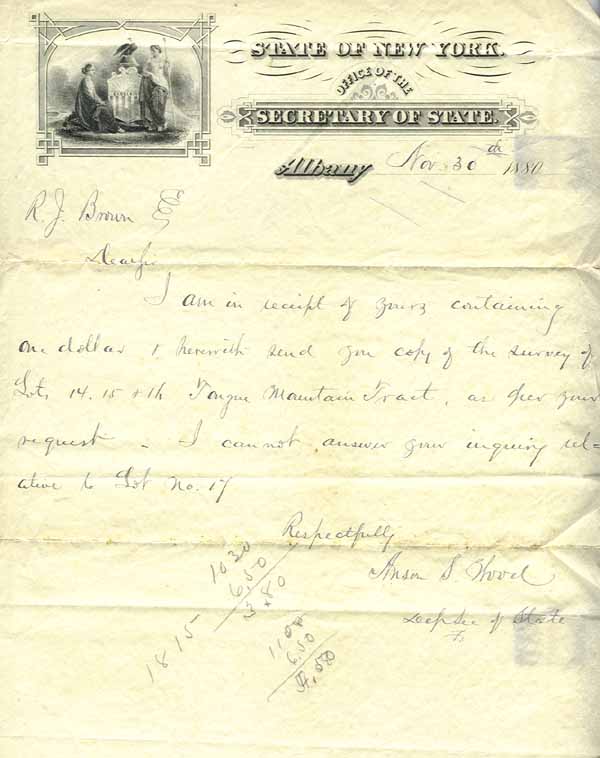 STATE OF NEW YORK.
OFFICE OF THE
SECRETARY OF STATE.
Albany Nov. 30th 1880
R. J. Brown Esq
Dear Sir
I am in receipt of yours containing
one dollar & herewith send you copy of the survey of
Lots 14. 15 & 16 Tongue Mountain Tract, as per your
request - I cannot answer your inquiry rel-
ative to Lot No. 17
Respectfully
Anson S. Wood
Dep Sec of State
1030
6.50
3.80
1815
1100
6.50
4.50